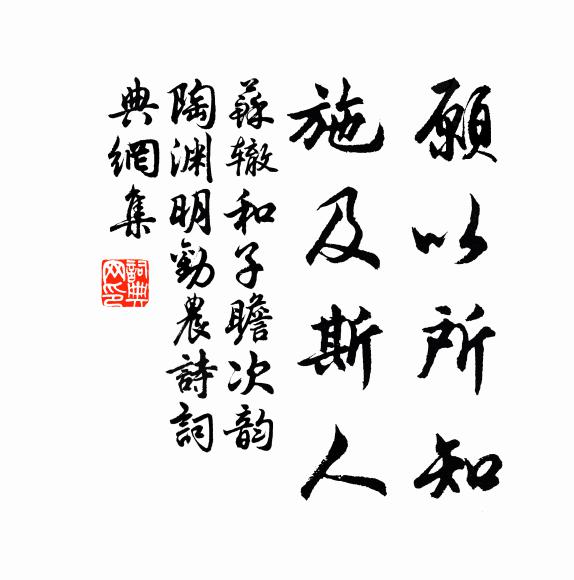 願以所知
施及斯人
蘇辙和子瞻次韵
陶渊明勸農詩詞
典網集
詞典
网印